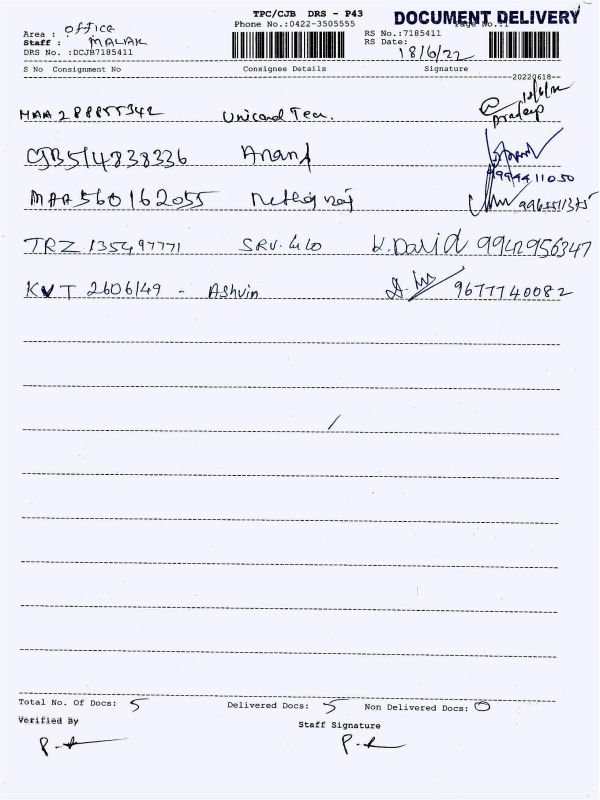 TPC/CJB DRS - P43 DOCUMENT DELIVERY
Phone No.:0422-3505555
Area : office
Staff : MALAR
DRS No. :DCJB7185411
RS No.:7185411
RS Date:
18/6/22
S No Consignment No Consignee Details Signature
20220618
18/6/22
MAA 288855342 Unicard Tec. Pradeep
CJB514838336 Anand
9994411050
MAA560162055 9965511375
TRZ 135497771 SRV. K. David 9942956347
KVT 2606149 - Ashvin 9677740082
Total No. Of Docs: 5 Delivered Docs: 5 Non Delivered Docs: 0
Verified By Staff Signature